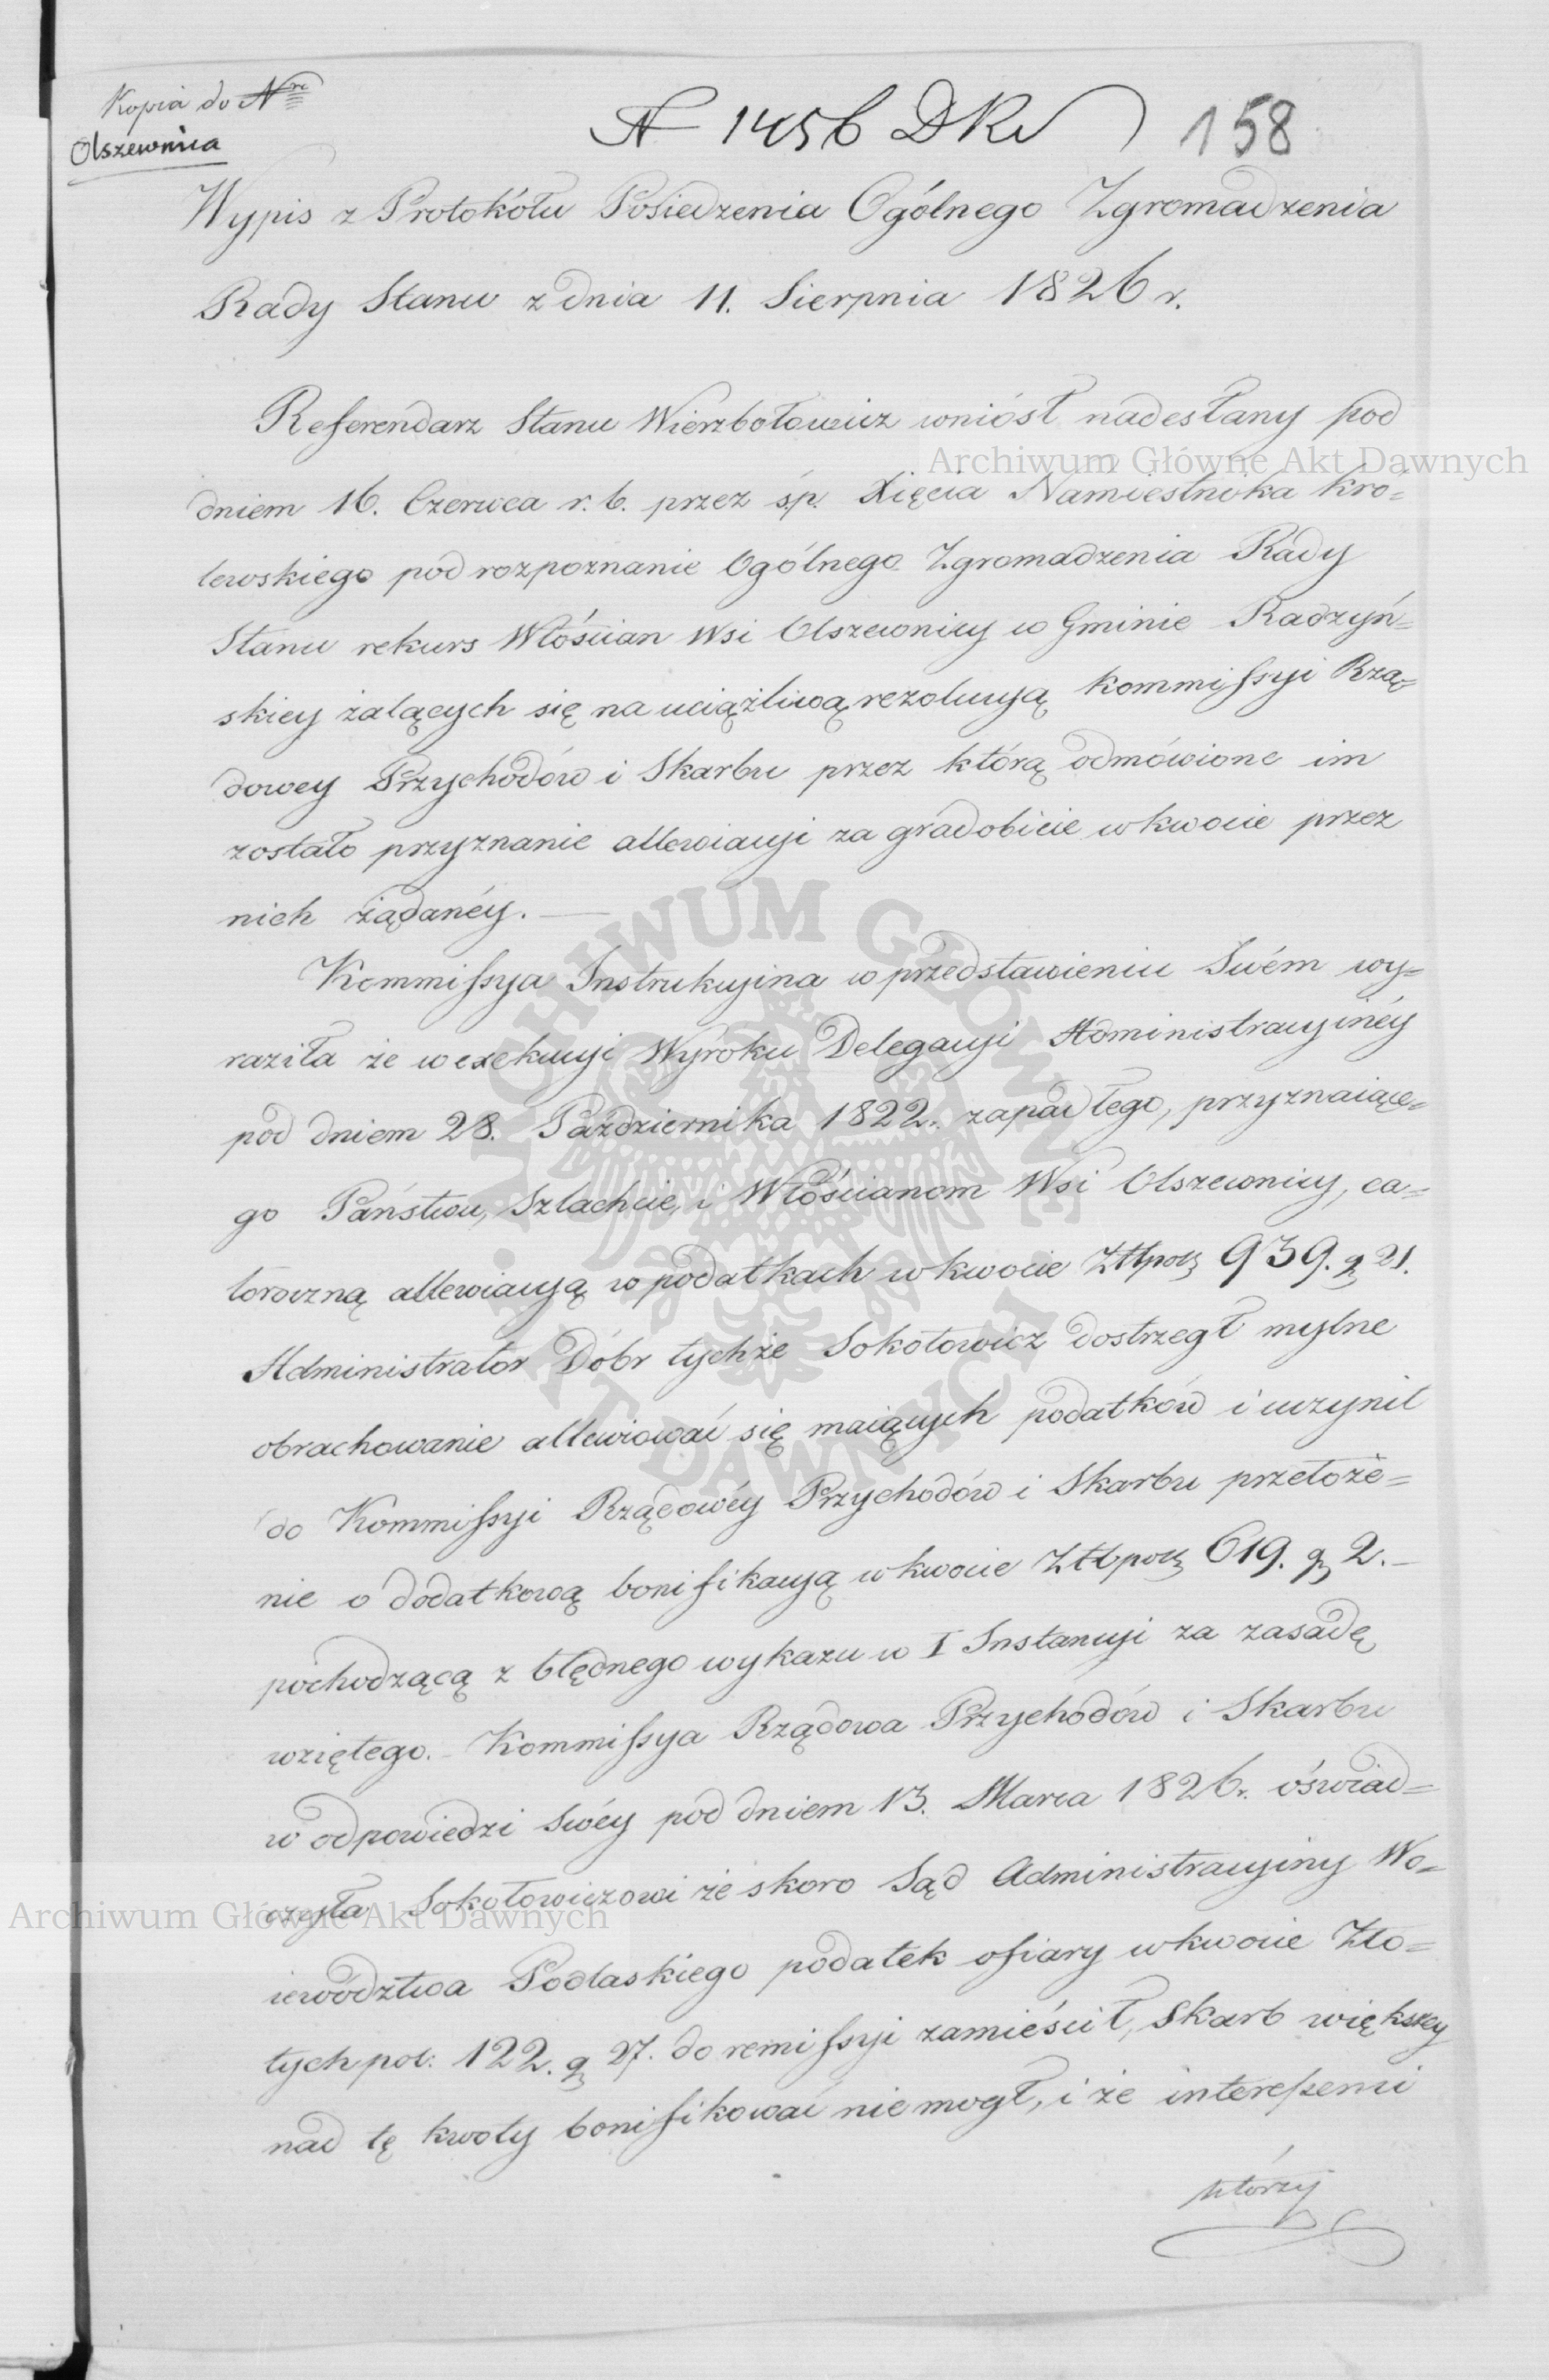 Kopia do Nro
Olszewnica
N 1456 DKs 158
Wypis z Protokółu Posiedzenia Ogólnego Zgromadzenia
Rady Stanu z dnia 11. Sierpnia 1826 r.
Referendarz Stanu Wierzbołowicz wniósł nadesłany pod
Archiwum Główne Akt Dawnych
dniem 16. Czerwca r. b. przez ś.p. Xięcia Namiestnika Kró=
lewskiego pod rozpoznanie Ogólnego Zgromadzenia Rady
Stanu rekurs Włościan Wsi Olszewnicy w Gminie Radzyń=
skiey żalących się na uciążliwą rezolucyą Kommissyi Rzą=
dowey Przychodów i Skarbu przez którą odmówione im
zostało przyznanie allewiacyi za gradobicie w kwocie przez
nich żądanéy. —
Kommissya Instrukcyina w przedstawieniu Swém wy=
raziła że w exekucyi Wyroku Delegacyi Administracyinéy
pod dniem 28. Października 1822. zapadłego, przyznaiące=
go Państwu, Szlachcie, i Włościanom Wsi Olszewnicy, ca=
łoroczną allewiacyą w podatkach w kwocie Złłpols 939. g 21.
Administrator Dóbr tychże Sokołowicz dostrzegł mylne
obrachowanie allewiować się maiących podatków i uczynił
do Kommissyi Rządowéy Przychodów i Skarbu przełoże=
nie o dodatkową bonifikacyą w kwocie Złłpols 619. g 2. —
pochodzącą z błędnego wykazu w I Instancyi za zasadę
wziętego. – Kommissya Rządowa Przychodów i Skarbu
w odpowiedzi Swéy pod dniem 13. Marca 1826. oświad=
czyła Sokołowiczowi że skoro Sąd Administracyiny Wo=
Archiwum Główne Akt Dawnych
iewództwa Podlaskiego podatek ofiary w kwocie Zło=
tych pol: 122. g 27. do remissyi zamieścił, Skarb większey
nad tę kwoty bonifikować nie mogł, i że interessenci
którzy
ARCHIWUM GŁÓWNE
AKT DAWNYCH